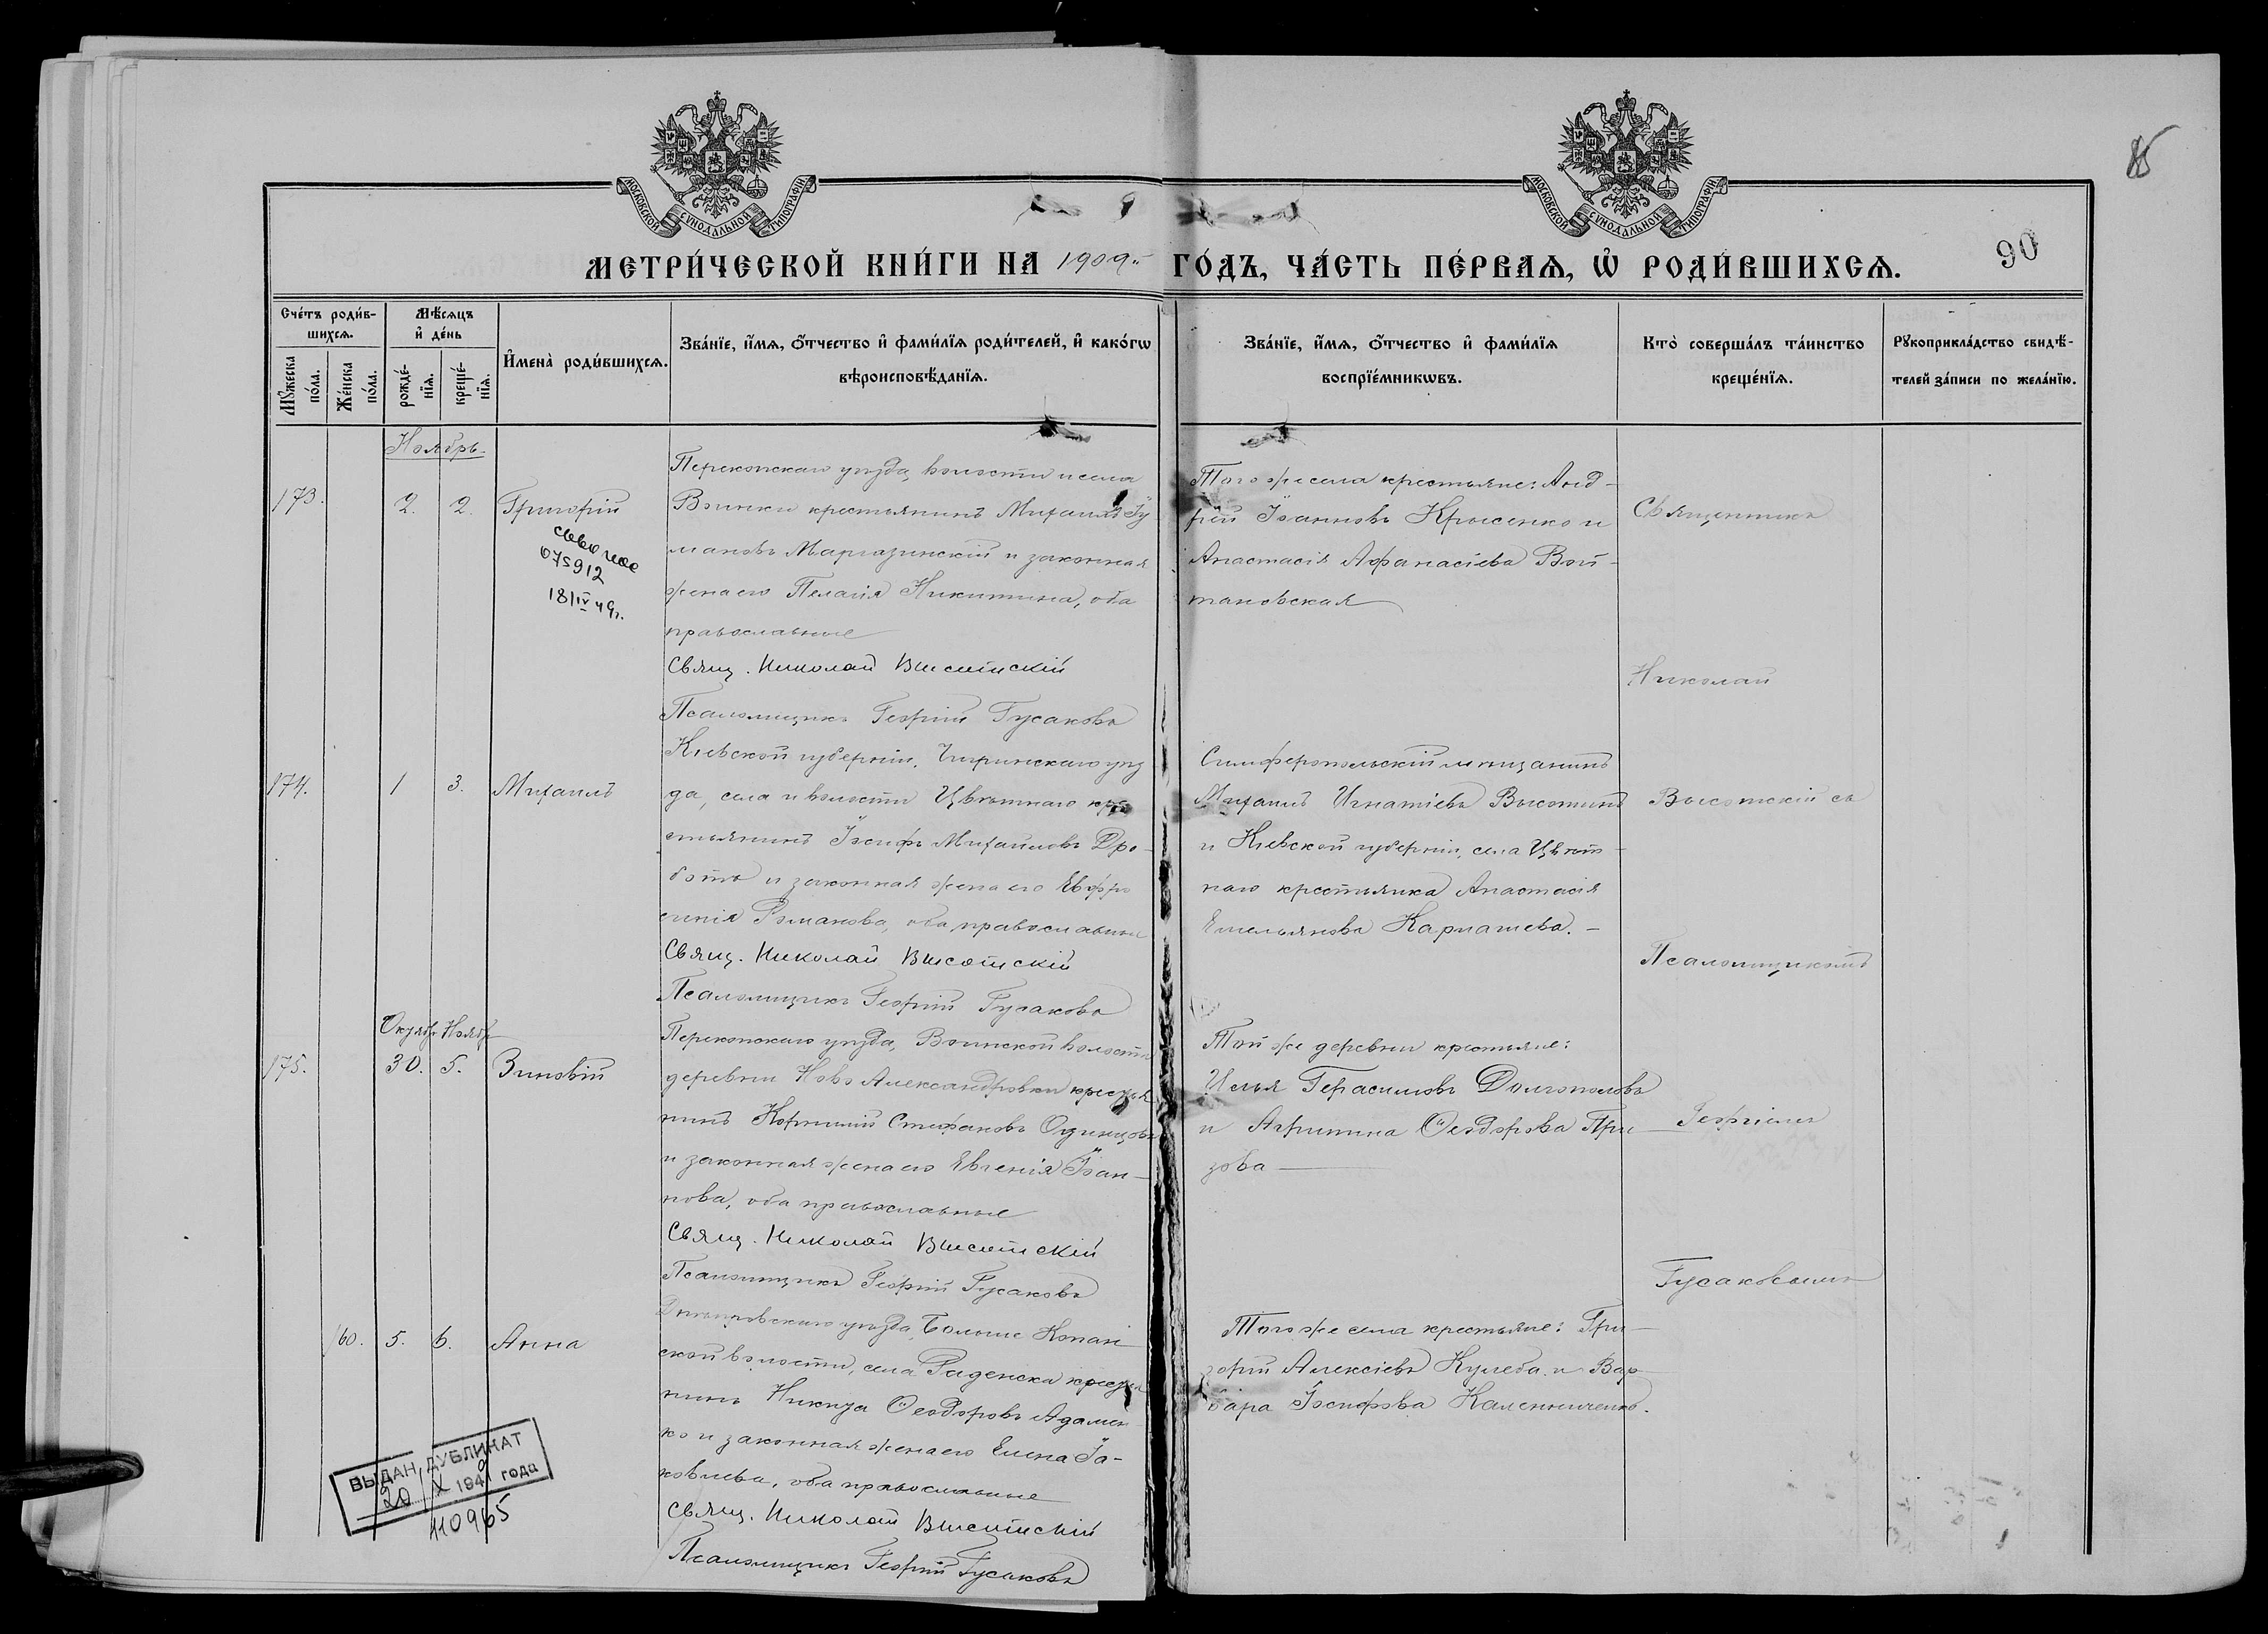 МОСКОВСКОЙ СѴНОДАЛЬНОЙ ТИПОГРАФІИ
МОСКОВСКОЙ СѴНОДАЛЬНОЙ ТИПОГРАФІИ
85
90
МЕТРИ́ЧЕСКОЙ КНИ́ГИ НА 1909 ГО́ДЪ, ЧА́СТЬ ПЕ́РВАѦ, Ѡ҆ РОДИ́ВШИХСѦ.
Сче́тъ роди́в-
шихсѧ.
Мꙋ́жеска по́ла.
Же́нска по́ла.
Мѣ́сѧцъ
и҆ де́нь
рожде́-
нїѧ.
креще́-
нїѧ.
И҆мена̀ роди́вшихсѧ.
Зва́нїе, и҆́мѧ, ѻ҆́тчество и҆ фами́лїѧ роди́телей, и҆ како́гѡ
вѣроисповѣ́данїѧ.
Зва́нїе, и҆́мѧ, ѻ҆́тчество и҆ фами́лїѧ
воспрїе́мникѡвъ.
Кто̀ соверша́лъ та́инство
креще́нїѧ.
Рꙋкоприкла́дство свидѣ́-
телей за́писи по жела́нїю.
Ноябрь.
173.
2.
2.
Григорій
675912
18/IV 49г.
Перекопскаго уѣзда, волости и села
Воинки крестьянинъ Михаилъ
Маргазинскій и законная
жена его Пелагія Никитина, оба
православные
Свящ. Николай Высотскій
Псаломщикъ Георгій Гусаковъ
Того же села крестьяне: Анд-
рей Іоанновъ Крысенко и
Анастасія Афанасіева Вой-
тановская
Священникъ
Николай
174.
1
3.
Михаилъ
Кіевской губерніи, Чигиринскаго уѣз
да, села и волости Цвѣтнаго кре
стьянинъ Іосифъ Михаиловъ Дро-
ботъ и законная жена его Евфро
синія Романова, оба православные
Свящ. Николай Высотскій
Псаломщикъ Георгій Гусаковъ
Симферопольскій мѣщанинъ
Михаилъ Игнатіевъ Высотинъ
и Кіевской губерніи, села Цвѣт-
наго крестьянка Анастасія
Емельянова Карпашева.
Высотскій съ
Псаломщикомъ
Октябр Ноябр
175.
30.
5.
Зиновій
Перекопскаго уѣзда, Воинской волости
деревни Ново Александровки крестья
нинъ Корнилій Стефановъ Одинцовъ
и законная жена его Евгенія Іоан-
нова, оба православные
Свящ. Николай Высотскій
Псаломщикъ Георгій Гусаковъ
Той же деревни крестьяне:
Илья Герасимовъ Долгополовъ
и Агрипина Ѳеодорова При
зова
Георгіемъ
Гусаковымъ
160.
5.
6.
Анна
Днѣпровскаго уѣзда, Больше Копан
ской волости, села Раденска крестья
нинъ Никита Ѳеодоровъ Адамен
ко и законная жена его Елена Іа-
ковлева, оба православные
Свящ. Николай Высотскій
Псаломщикъ Георгій Гусаковъ
Того же села крестьяне: Гри-
горій Алексіевъ Кулеба и Вар
вара Іосифова Калениченко.
ВЫДАН ДУБЛИКАТ
20 X 194 года
110965